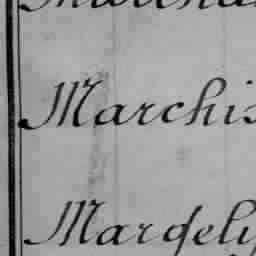 Marchis
Margely